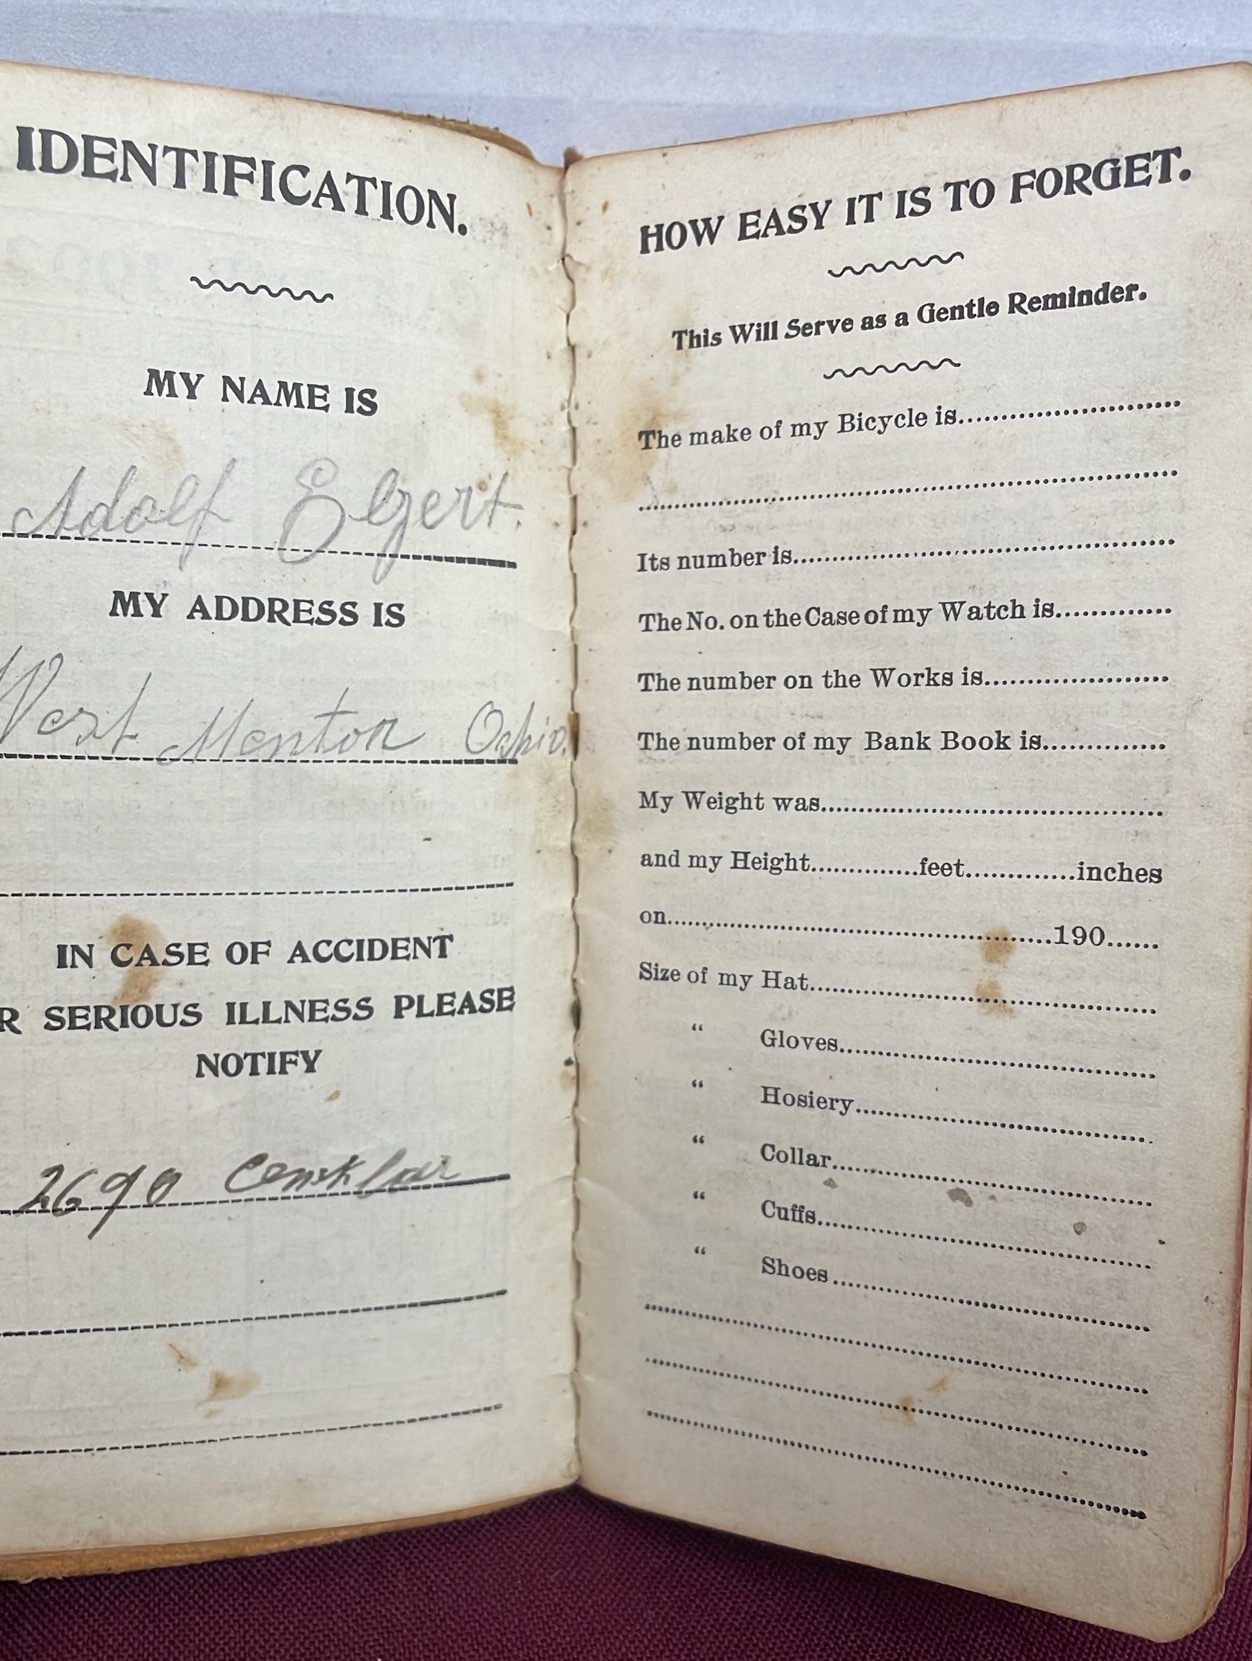 IDENTIFICATION.
MY NAME IS
Adolf Elgert.
MY ADDRESS IS
West Mentor Oohio.
IN CASE OF ACCIDENT
R SERIOUS ILLNESS PLEASE
NOTIFY
2690
HOW EASY IT IS TO FORGET.
This Will Serve as a Gentle Reminder.
The make of my Bicycle is
Its number is
The No. on the Case of my Watch is
The number on the Works is
The number of my Bank Book is
My Weight was
and my Height feet inches
on 190
Size of my Hat
“ Gloves
“ Hosiery
“ Collar
“ Cuffs
“ Shoes